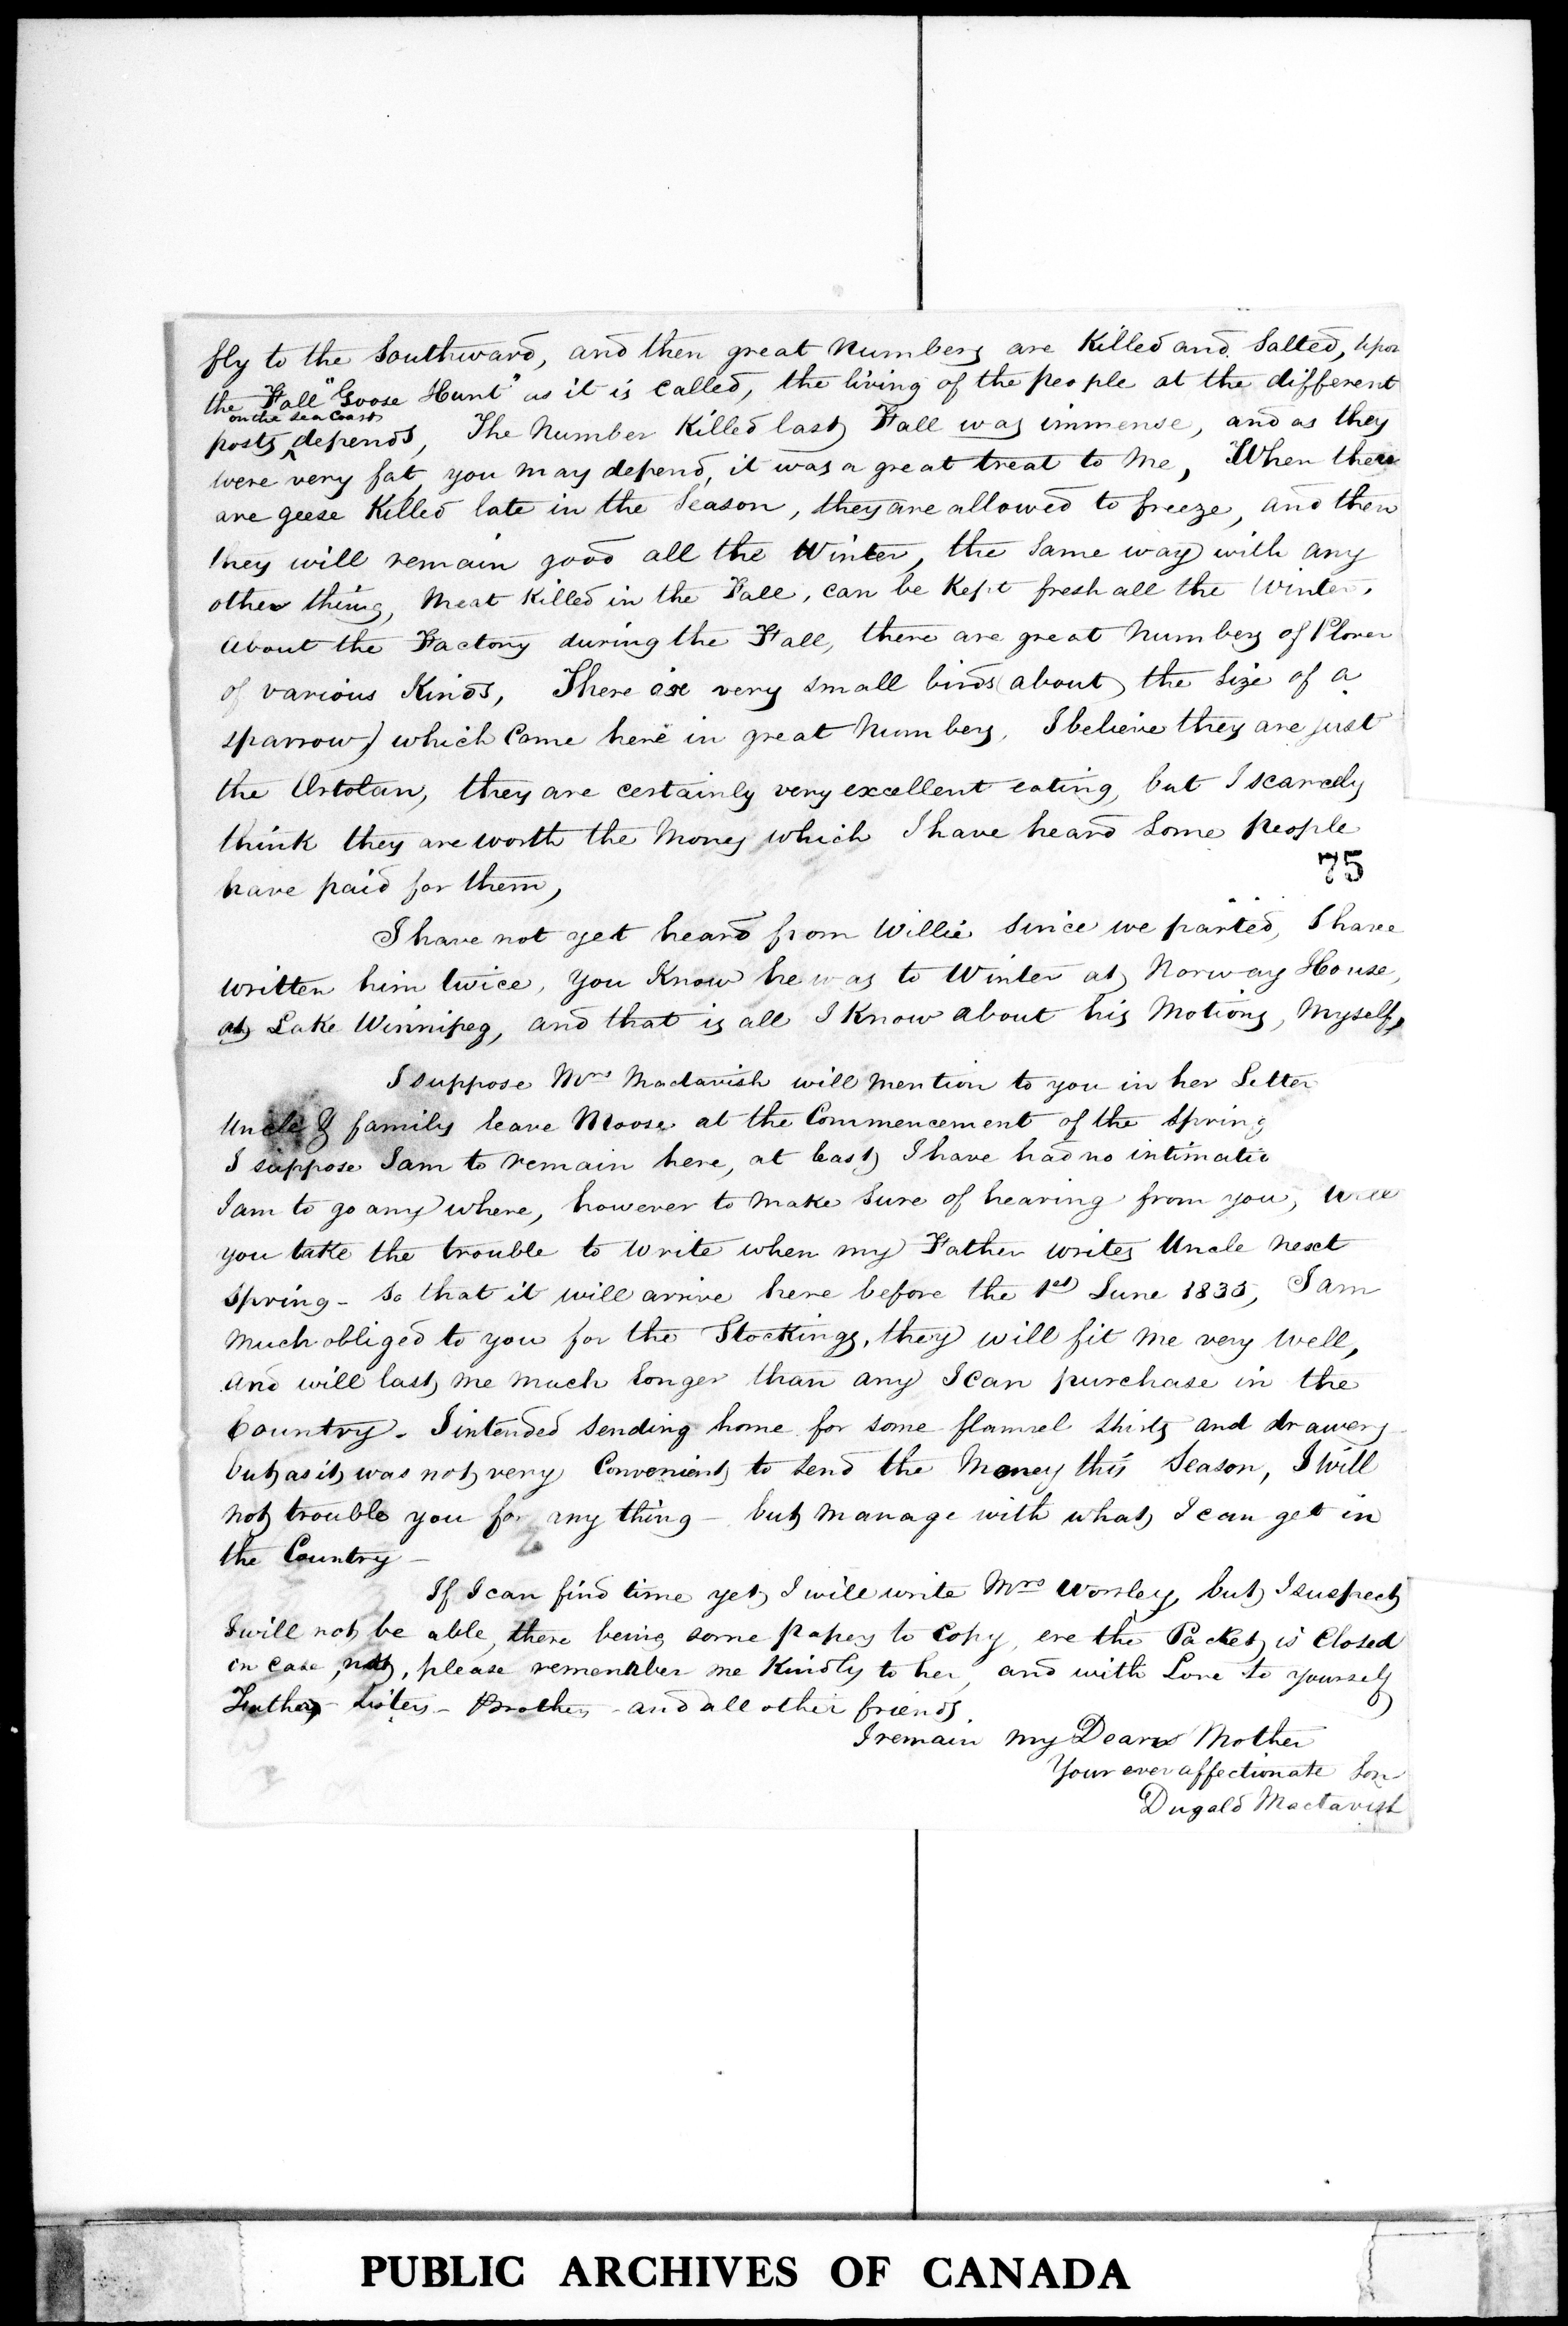 fly to the Southward, and then great Numbers are Killed and Salted, upon
the Fall "Goose Hunt" as it is called, the living of the people at the different
on the Sea Coast
posts depends, The Number Killed last Fall was immense, and as they
were very fat, you may depend, it was a great treat to Me, When there
are geese Killed late in the Season, they are allowed to freeze, and then
they will remain good all the Winter, the Same way with any
other thing, Meat Killed in the Fall, can be Kept fresh all the Winter.
About the Factory during the Fall, there are great Numbers of Plover
of various Kinds, There are very small birds (about the Size of a
sparrow) which Come here in great Numbers, I believe they are just
the Ortolan, they are certainly very excellent eating, but I scarcely
think they are worth the Money which I have heard Some people
75
have paid for them,
I have not yet heard from Willie Since we parted, I have
written him twice, you Know he was to Winter at Norway House,
at Lake Winnipeg, and that is all I Know about his Motions, Myself,
I suppose Mrs Mactavish will Mention to you in her Letter
Uncle & family leave Moose at the Commencement of the Spring
I suppose I am to remain here, at least I have had no intimatio
I am to go any where, however to Make Sure of hearing from you, will
you take the trouble to write when my Father writes Uncle next
Spring - So that it will arrive here before the 1st June 1835, I am
Much obliged to you for the Stockings, they will fit Me very well,
and will last me much longer than any I can purchase in the
Country. I intended Sending home for some flannel Shirts and drawers
but as it was not very Convenient to Send the Money this Season, I will
not trouble you for any thing - but manage with what I can get in
the Country -
If I can find time yet I will write Mrs Worsley, but I suspect
I will not be able, there being some papers to Copy, ere the Packet is Closed
in case not, please remember me Kindly to her, and with Love to yourself
Father - Sisters - Brother - and all other friends.
I remain My Dear Mother
Your ever affectionate Son
Dugald Mactavish
PUBLIC ARCHIVES OF CANADA